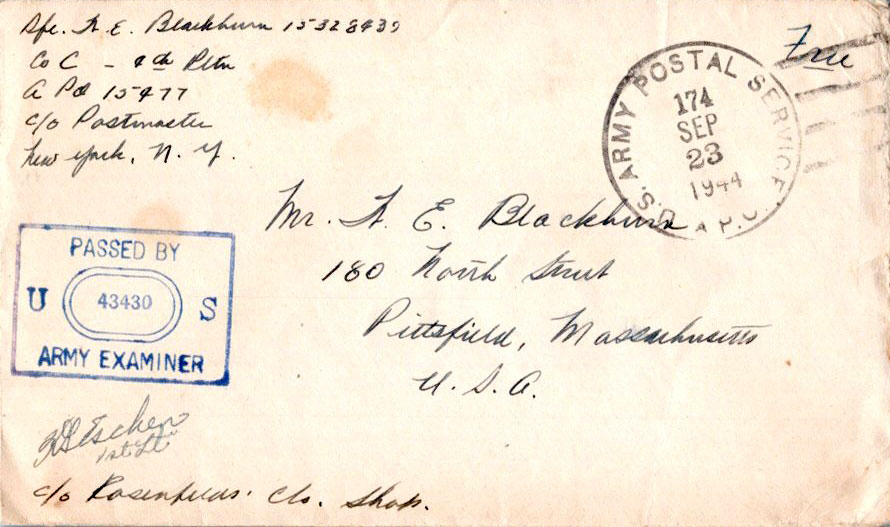 Pfc. H. E. Blackburn 15328439
Co C - 4th Pltn
A P O 15477
c/o Postmaster
New York, N. Y.
Free
U.S. ARMY POSTAL SERVICE A.P.O.
174
SEP
23
1944
Mr. H. E. Blackburn
180 North Street
Pittsfield, Massachusetts
U. S. A.
PASSED BY
U 43430 S
ARMY EXAMINER
1st Lt
c/o Rosenfelds. Clo. Shop.